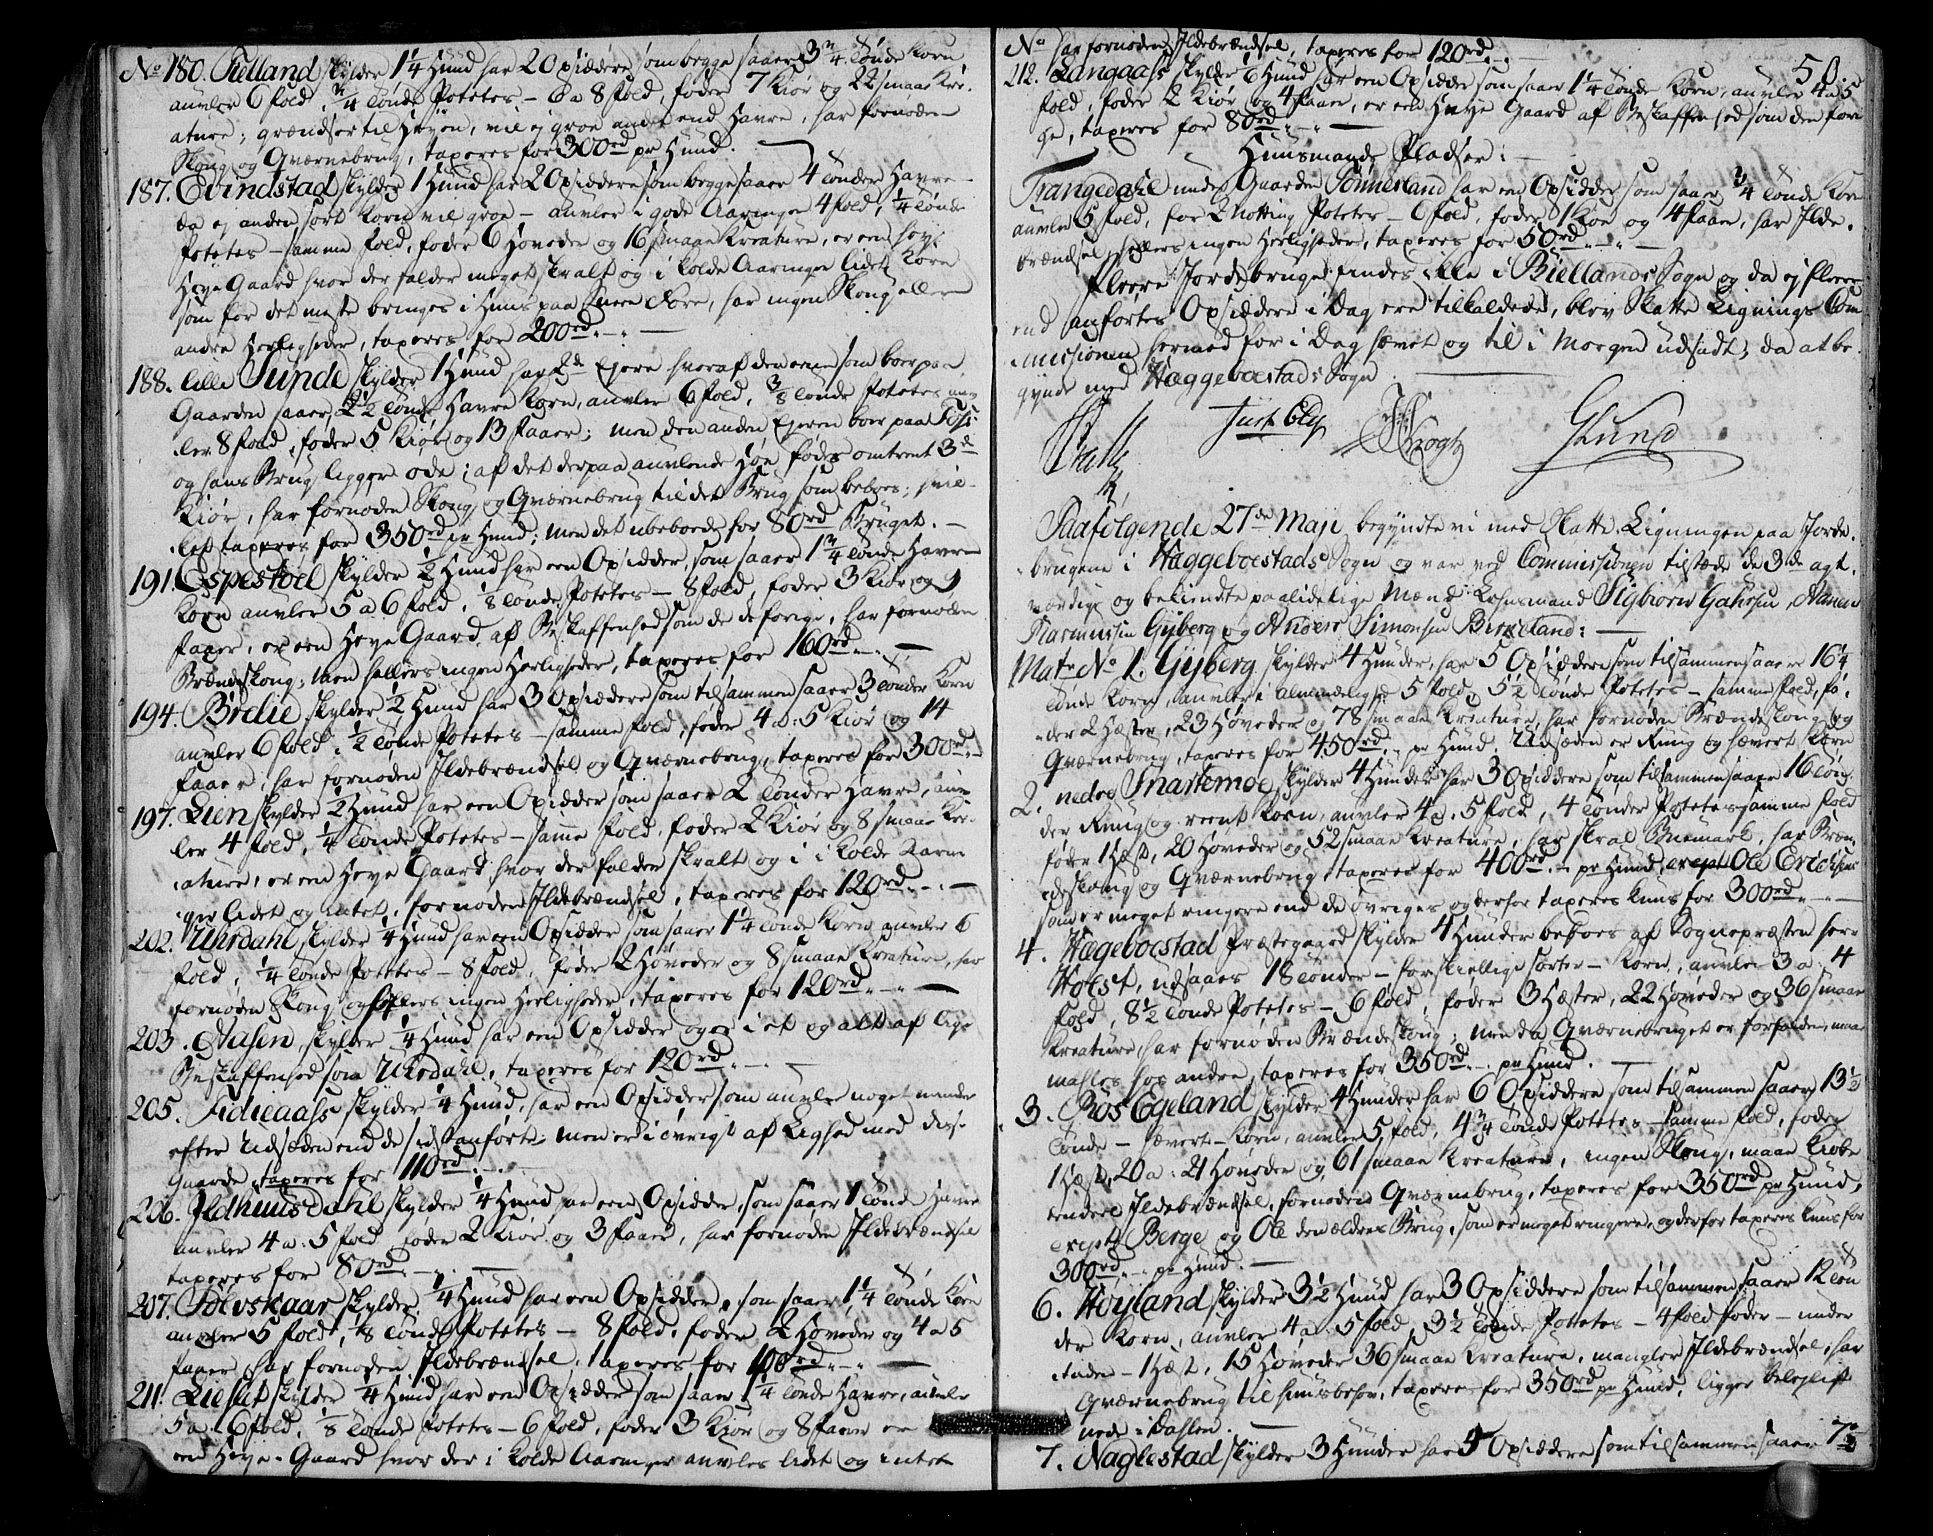 No 180. Kielland skylder 1¼ Hund har 2 Opsiddere som begge saaer 3¾ Tønde Korn
anvler 6 fold, ¾ Tønde Potetes – 6 a 8 fold, føder 7 Kiør og 22 smaae Kre-
ature; grændser til Heyen, vil ej groe andet end Havre, har fornøden
Skoug og Qværnebrug, taxeres for 300rd pr Hund.
187. Evindstad skylder 1 Hund har 2 Opsiddere som begge saaer 4 Tønder Havre
da ej anden sort Korn vil groe – anvler i gode Aaringer 4 fold, ¼ Tønde
Potetes – samme fold, føder 6 Høveder og 16 smaae Kreature, er een høyt
Heye Gaard hvor der falder meget skralt og i kolde Aaringer lidet Korn
som for det meste bringes i Huus paa Snee Føre, har ingen Skoug eller
andre Herligheder, taxeres for 200rd
188. lille Sunde skylder 1 Hund har 2de Ejere hveraf den eene som boer paa
Gaarden saaer 2½ Tønde Havre Korn, anvler 6 fold, ⅜ Tønde Potetes anv-
ler 8 fold, føder 5 Kiør og 13 Faaer; men den anden Ejeren boer paa
og hans Brug ligger øde; af det derpaa anvlende Høe fødes omtrent 3de
Kiør, har fornøden Skoug og Qværnebrug til det Brug som beboes; hvil-
ket taxeres for 350rd pr Hund; men det ubeboede for 80rd Bruget.
191. Espestøel skylder ½ Hund har een Opsidder, som saaer 1¾ Tønde Havre
Korn anvler 5 a 6 fold, ⅛ Tønde Potetes – 8 fold, føder 3 Kiør og 9
Faaer, er een Heye Gaard af Beskaffenhed som de deforige, har fornøden
Brændeskoug; men hellers ingen Herligheder, taxeres for 160rd
194. Bredie skylder ½ Hund har 3 Opsiddere som tilsammen saaer 3 Tønder Korn
anvler 6 fold, ½ Tønde Potetes – samme fold, føder 4 a 5 Kiør og 14
Faaer, har fornøden Ildebrændsel og Qværnebrug, taxeres for 300rd
197. Lien skylder ½ Hund har een Opsidder som saaer 2 Tønder Havre, anv-
ler 4 fold, ¼ Tønde Potetes – same fold, føder 2 Kiør og 8 smaae Kre-
ature, er een Heye Gaard hvor der falder skralt og i i kolde Aarin-
ger lidet og intet, fornøden Ildebrændsel, taxeres for 120rd
202. Uhrdahl skylder ¼ Hund har een Opsidder som saaer 1¼ Tønde Korn anvler 6
fold, ¼ Tønde Potetes – 8 fold, føder 2 Høveder og 8 smaae Kreature, har
fornøden Skoug og hellers ingen Herligheder, taxeres for 120rd
203. Aasen, skylder ¼ Hund har een Opsidder og er i et og alt af lige
Beskaffenhed som Uhrdahl, taxeres for 120rd
205. Fidieaass skylder ¼ Hund, har een Opsidder som anvler noget mindre
efter Udsæden end de sidstanførte men er i øvrigt af Lighed med diss-
Gaarde, taxeres for 110rd
206. Ildhuusdahl skylder ¼ Hund har een Opsidder, som saaer 1 Tønd Havre
anvler 4 a 5 fold, føder 2 Kiør og 3 Faaer, har fornøden Ildebrændsel
taxeres for 80rd
207. Sølvskaar skylder ¼ Hund har een Opsidder, som saaer 1¼ Tønde Korn
anvler 5 fold, ⅛ Tønde Potetes – 8 fold, føder 2 Høveder og 4 a 5
Faaer, har fornøden Ildebrændsel, taxeres for 100rd
211. Liellet skylder ¼ Hund har een Opsidder som saaer 1¼ Tønde Havre, anvler
5 a 6 fold, ⅛ Tønde Potetes – 6 fold, føder 3 Kiør og 8 Faaer er
een Heye-Gaard hvor der i kolde Aaringer anvles lidet og intet
50.
No har fornøden Ildebrændsel, taxeres for 120rd
212. Langaass skylder ⅙ Hund har een Opsidder som saaer 1¼ Tønde Korn, anvler 4 a 5
fold, føder 2 Kiør og 4 Faaer, er een Heye Gaard af Beskaffenhed som den fori-
ge, taxeres for 80rd
Huusmands Pladser:
Trangedahl under Gaarden Sønnesland har een Opsidder som saaer ¾ Tønde Korn
anvler 5 fold, for 2 Notting Potetes – 6 fold, føder 1 Koe og 4 Faaer, har Ilde-
brændsel hellers ingen Herligheder, taxeres for 50rd
Fleere Jordebruger findes ikke i Biellands Sogn og da ej fleere
end anførtes Opsiddere i Dag ere tilkaldede, blev Skatte Lignings Com-
missionen hermed for i Dag hævet og til i Morgen udsadt, da at be-
gynde med Hæggeboestads Sogn
Just Ely Krogh GLund
Paafølgende 27de Maji begyndte vi med Skatte-Ligningen paa Jorde-
brugene i Hæggeboestads Sogn og var ved Commissionen tilstæde de 3de agt-
værdige og bekiendte paalidelige Mænd Lehnsmand Sigbiørn Gahrsen, Aanen
Rasmussen Gyberg og Anders Simonsen Birkeland:
Matr No 1. Gyberg skylder 4 Hunder, har 5 Opsiddere som tilsammen saaer 16¼
Tønde Korn, anvler i almindelighed 5 fold, 5½ Tønde Potetes – samme fold, fø-
der 2 Hæster, 23 Høveder og 78 smaae Kreature, har fornøden Brændeskoug og
Qværnebrug, taxeres for 450rd pr Hund. Udsæden er Ruug og hævert Korn
2. nedre Snartemoe skylder 4 Hunder har 3 Opsiddere som tilsammen saaer 16 Tøn-
der Ruug og reent Korn, anvler 4 a 5 fold, 4 Tønder Potetes samme fold
føder 1 Hæst, 20 Høveder og 52 smaae Kreature, har skral Buemark, har Bræn-
deskoug og Qværnebrug, taxeres for 400rd pr Hund, except Ole Erichsens
som er meget ringere end de øvriges og derfor taxeres kuns for 300rd
4. Hægeboestad Præstegaard skylder 4 Hunder beboes af Sognepræsten herr
Holst, udsaaes 18 Tønder – forskiellige sorter – Korn, anvler 3 a 4
fold, 8½ Tønde Potetes – 6 fold, føder 3 Hæster, 22 Høveder og 36 smaae
Kreature, har fornøden Brændeskoug, men da Qværnebruget er forfalden, maae
mahles hos andre, taxeres for 350rd pr Hund.
3. Røs Egeland skylder 4 Hunder har 6 Opsiddere som tilsammen saaer 13½
Tønde – hævert-Korn, anvler 5 fold, 4¾ Tønde Potetes – samme fold, føder
1 Hæst, 20 a 21 Høveder og 61 smaae Kreature, ingen Skoug, maae kiøbe
tendere Ildebrændsel, fornøden Qværnebrug, taxeres for 350rd pr Hund,
except Berge og Ole den ældres Brug, som er meget ringere, og derfor taxeres kuns for
300rd pr Hund.
6. Høyland skylder 3½ Hund har 3 Opsiddere som tilsammen saaer 12 Tøn
der Korn, anvler 4 a 5 fold, 3½ Tønde Potetes – 4 fold føder – under
tiden – 1 Hæst, 15 Høveder 36 smaae Kreature, mangler Ildebrændsel, har
Qværnebrug til huusbehov, taxeres for 350rd pr Hund, ligger beleyligst
nede i Dahlen.
7. Naglestad skylder 3 Hunder har 5 Opsiddere som tilsammen saaer 7½